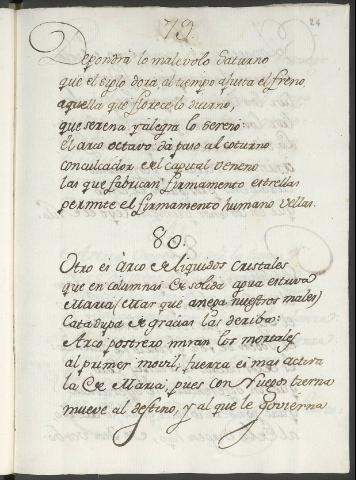 79.
24
Depondra lo malevolo Saturno
que el siglo dora, al tiempo ajusta el freno,
aquella que florece lo diurno,
que serena y alegra lo sereno
el arco octavo da paso al coturno
conculcador el capital veneno
las que fabrican firmamento estrellas
permite el firmamento humano vellas.
80.
Otro es Arco de liquidos cristales
que en columnas de solida agua
Maria (Mar que anega nuestros males)
Catadupa de gracias las deriba:
Arco postrero miran los mortales
al primer movil, fuerza es mas activa
la de Maria, pues con ruegos tierna
mueve al destino, y al que le govierna